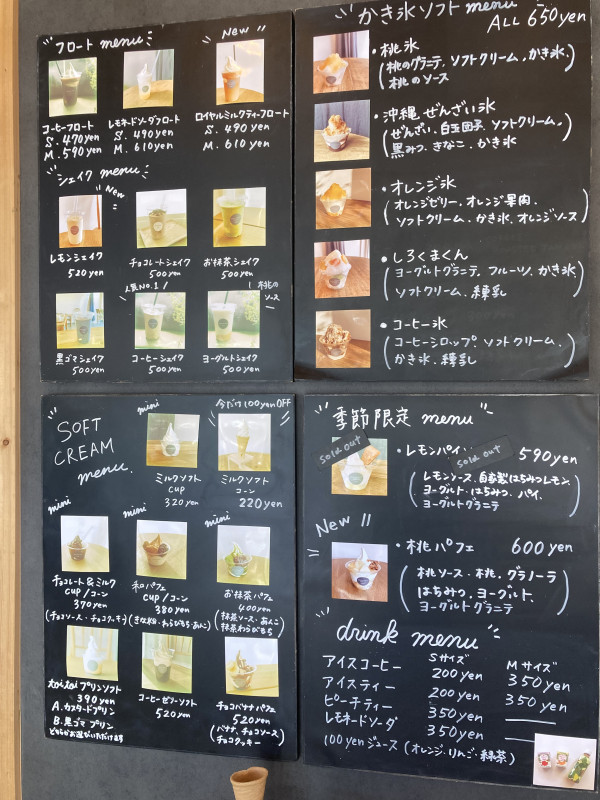 フロート menu
New
コーヒーフロート
S. 470yen
M. 590yen
レモネードソーダフロート
S. 490yen
M. 610yen
ロイヤルミルクティーフロート
S. 490yen
M. 610yen
シェイク menu
New
レモンシェイク
520yen
チョコレートシェイク
500yen
お抹茶シェイク
500yen
人気NO.1
桃の
ソース
黒ゴマシェイク
500yen
コーヒーシェイク
500yen
ヨーグルトシェイク
500yen
かき氷ソフト menu
ALL 650yen
・桃氷
(桃のグラニテ、ソフトクリーム、かき氷、
桃のソース)
・沖縄ぜんざい氷
(ぜんざい、白玉団子、ソフトクリーム、
黒みつ、きなこ、かき氷)
・オレンジ氷
(オレンジゼリー、オレンジ果肉、
ソフトクリーム、かき氷、オレンジソース)
・しろくまくん
(ヨーグルトグラニテ、フルーツ、かき氷
ソフトクリーム、練乳)
・コーヒー氷
(コーヒーシロップ、ソフトクリーム、
かき氷、練乳)
SOFT
CREAM
menu.
mini
ミルクソフト
CUP
320yen
今だけ100yenOFF
ミルクソフト
コーン
220yen
mini
チョコレート&ミルク
CUP/コーン
370yen
(チョコソース・チョコクッキー)
mini
和パフェ
CUP/コーン
380yen
(きな粉・わらびもち・あんこ)
mini
お抹茶パフェ
400yen
(抹茶ソース・あんこ
抹茶わらびもち)
toitoiプリンソフト
390yen
A.カスタードプリン
B.黒ゴマプリン
どちらかお選びいただけます
コーヒーゼリーソフト
520yen
チョコバナナパフェ
520yen
(バナナ、チョコソース
チョコクッキー)
季節限定 menu
sold out
・レモンパイ
sold out
590yen
(レモンソース、自家製はちみつレモン、
ヨーグルト、はちみつ、パイ、
ヨーグルトグラニテ)
New
・桃パフェ 600yen
(桃ソース・桃、グラノーラ
はちみつ、ヨーグルト
ヨーグルトグラニテ)
drink menu
Sサイズ Mサイズ
アイスコーヒー 200yen 350yen
アイスティー 200yen 350yen
ピーチティー 350yen
レモネードソーダ 350yen
100yenジュース (オレンジ・りんご・緑茶)